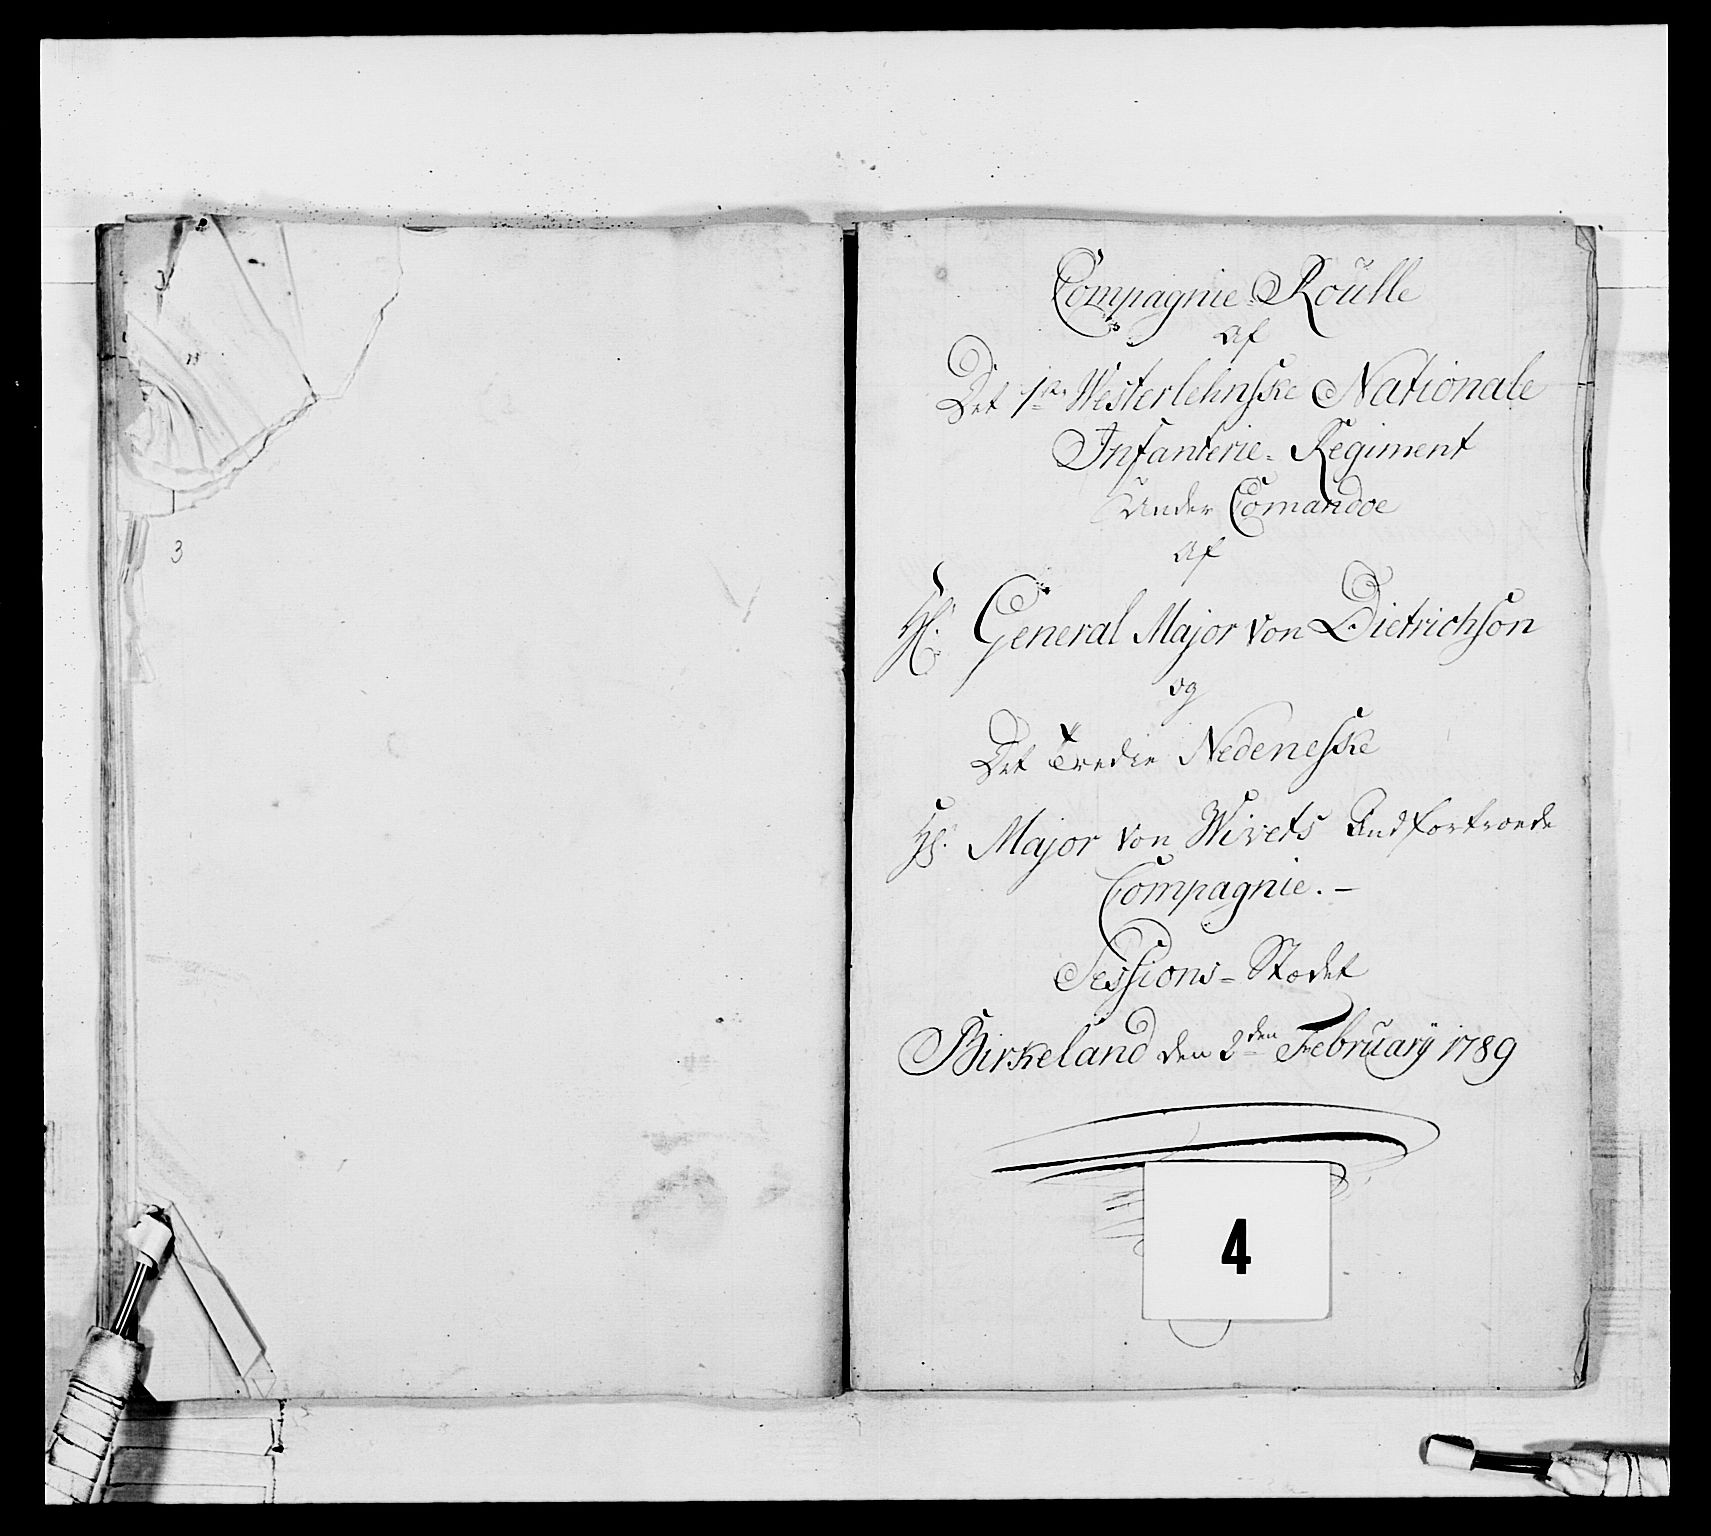 3
Compagnie-Roulle
af
Det 1ste Westerlehnske Nationale
Infanterie-Regiment
Under Comandoe
af
Hr. General Major von Dietrichson
og
Det Tredie Nedeneske
Hr. Major von Wivets Andfortroede
Compagnie. –
Sessions-Stædet
Birkeland den 2den Februarÿ 1789
4